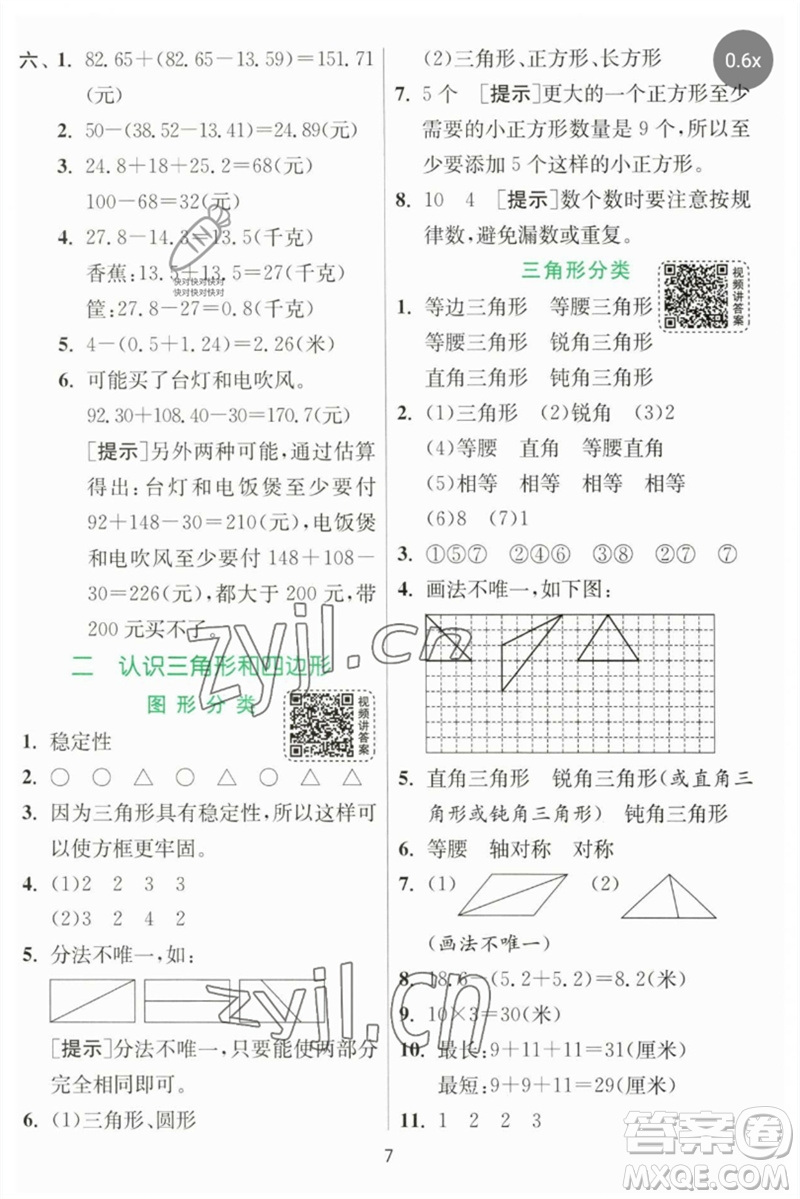 六、1. 82.65+(82.65-13.59)=151.71
(元)
2. 50-(38.52-13.41)=24.89(元)
3. 24.8+18+25.2=68(元)
100-68=32(元)
4. 27.8-14.3=13.5(千克)
香蕉:13.5+13.5=27(千克)
筐:27.8-27=0.8(千克)
快对快对快对
快对快对快对
5. 4-(0.5+1.24)=2.26(米)
6. 可能买了台灯和电吹风。
92.30+108.40-30=170.7(元)
[提示]另外两种可能,通过估算
得出:台灯和电饭煲至少要付
92+148-30=210(元),电饭煲
和电吹风至少要付148+108-
30=226(元),都大于200元,带
200元买不了。
zyjl.cn
二 认识三角形和四边形
图形分类
视频讲答案
1. 稳定性
2. ○ ○ △ ○ △ ○ △
3. 因为三角形具有稳定性,所以这样可
以使方框更牢固。
4. (1)2 2 3 3
(2)3 2 4 2
5. 分法不唯一,如:
[提示]分法不唯一,只要能使两部分
完全相同即可。
6. (1)三角形、圆形
(2)三角形、正方形、长方形
0.6x
7. 5个 [提示]更大的一个正方形至少
需要的小正方形数量是9个,所以至
少要添加5个这样的小正方形。
8. 10 4 [提示]数个数时要注意按规
律数,避免漏数或重复。
三角形分类
视频讲答案
1. 等边三角形 等腰三角形
等腰三角形 锐角三角形
直角三角形 钝角三角形
2. (1)三角形 (2)锐角 (3)2
(4)等腰 直角 等腰直角
(5)相等 相等 相等 相等
(6)8 (7)1
3. ①⑤⑦ ②④⑥ ③⑧ ②⑦ ⑦
4. 画法不唯一,如下图:
5. 直角三角形 锐角三角形(或直角三
角形或钝角三角形) 钝角三角形
6. 等腰 轴对称 对称
7. (1) (2)
(画法不唯一)
zyjl.cn
8. 18.6-(5.2+5.2)=8.2(米)
9. 10×3=30(厘米)
10. 最长:9+11+11=31(厘米)
最短:9+9+11=29(厘米)
11. 1 2 2 3
7
答案卷
MXQE.COM